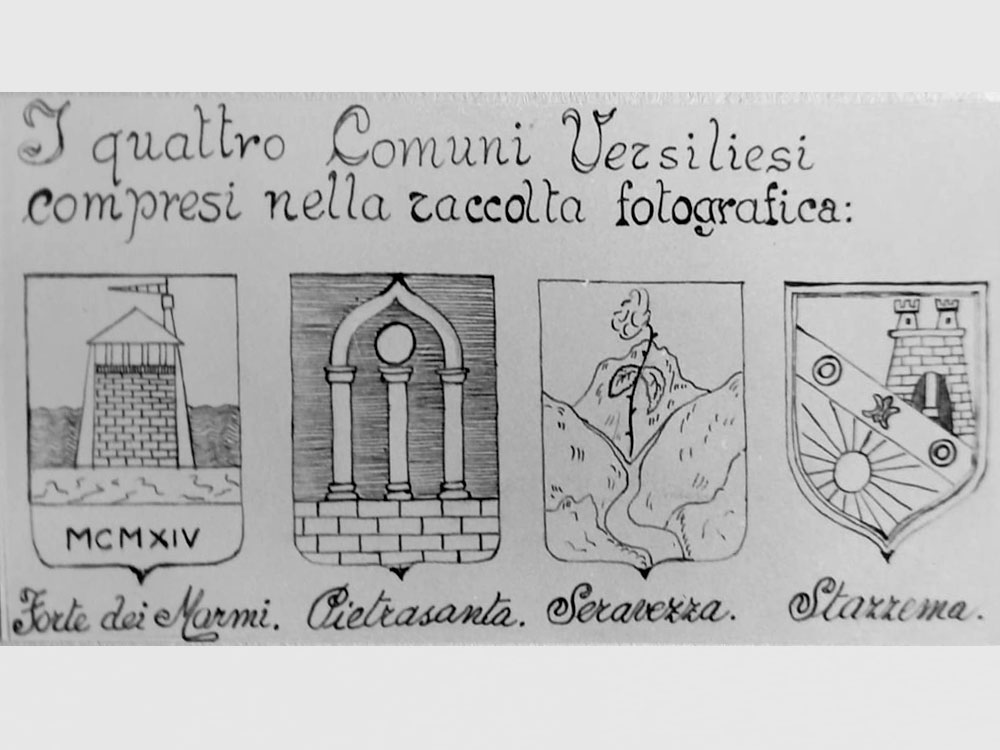 I quattro Comuni Versiliesi
compresi nella raccolta fotografica:
MCMXIV
Forte dei Marmi. Pietrasanta. Seravezza. Stazzema.